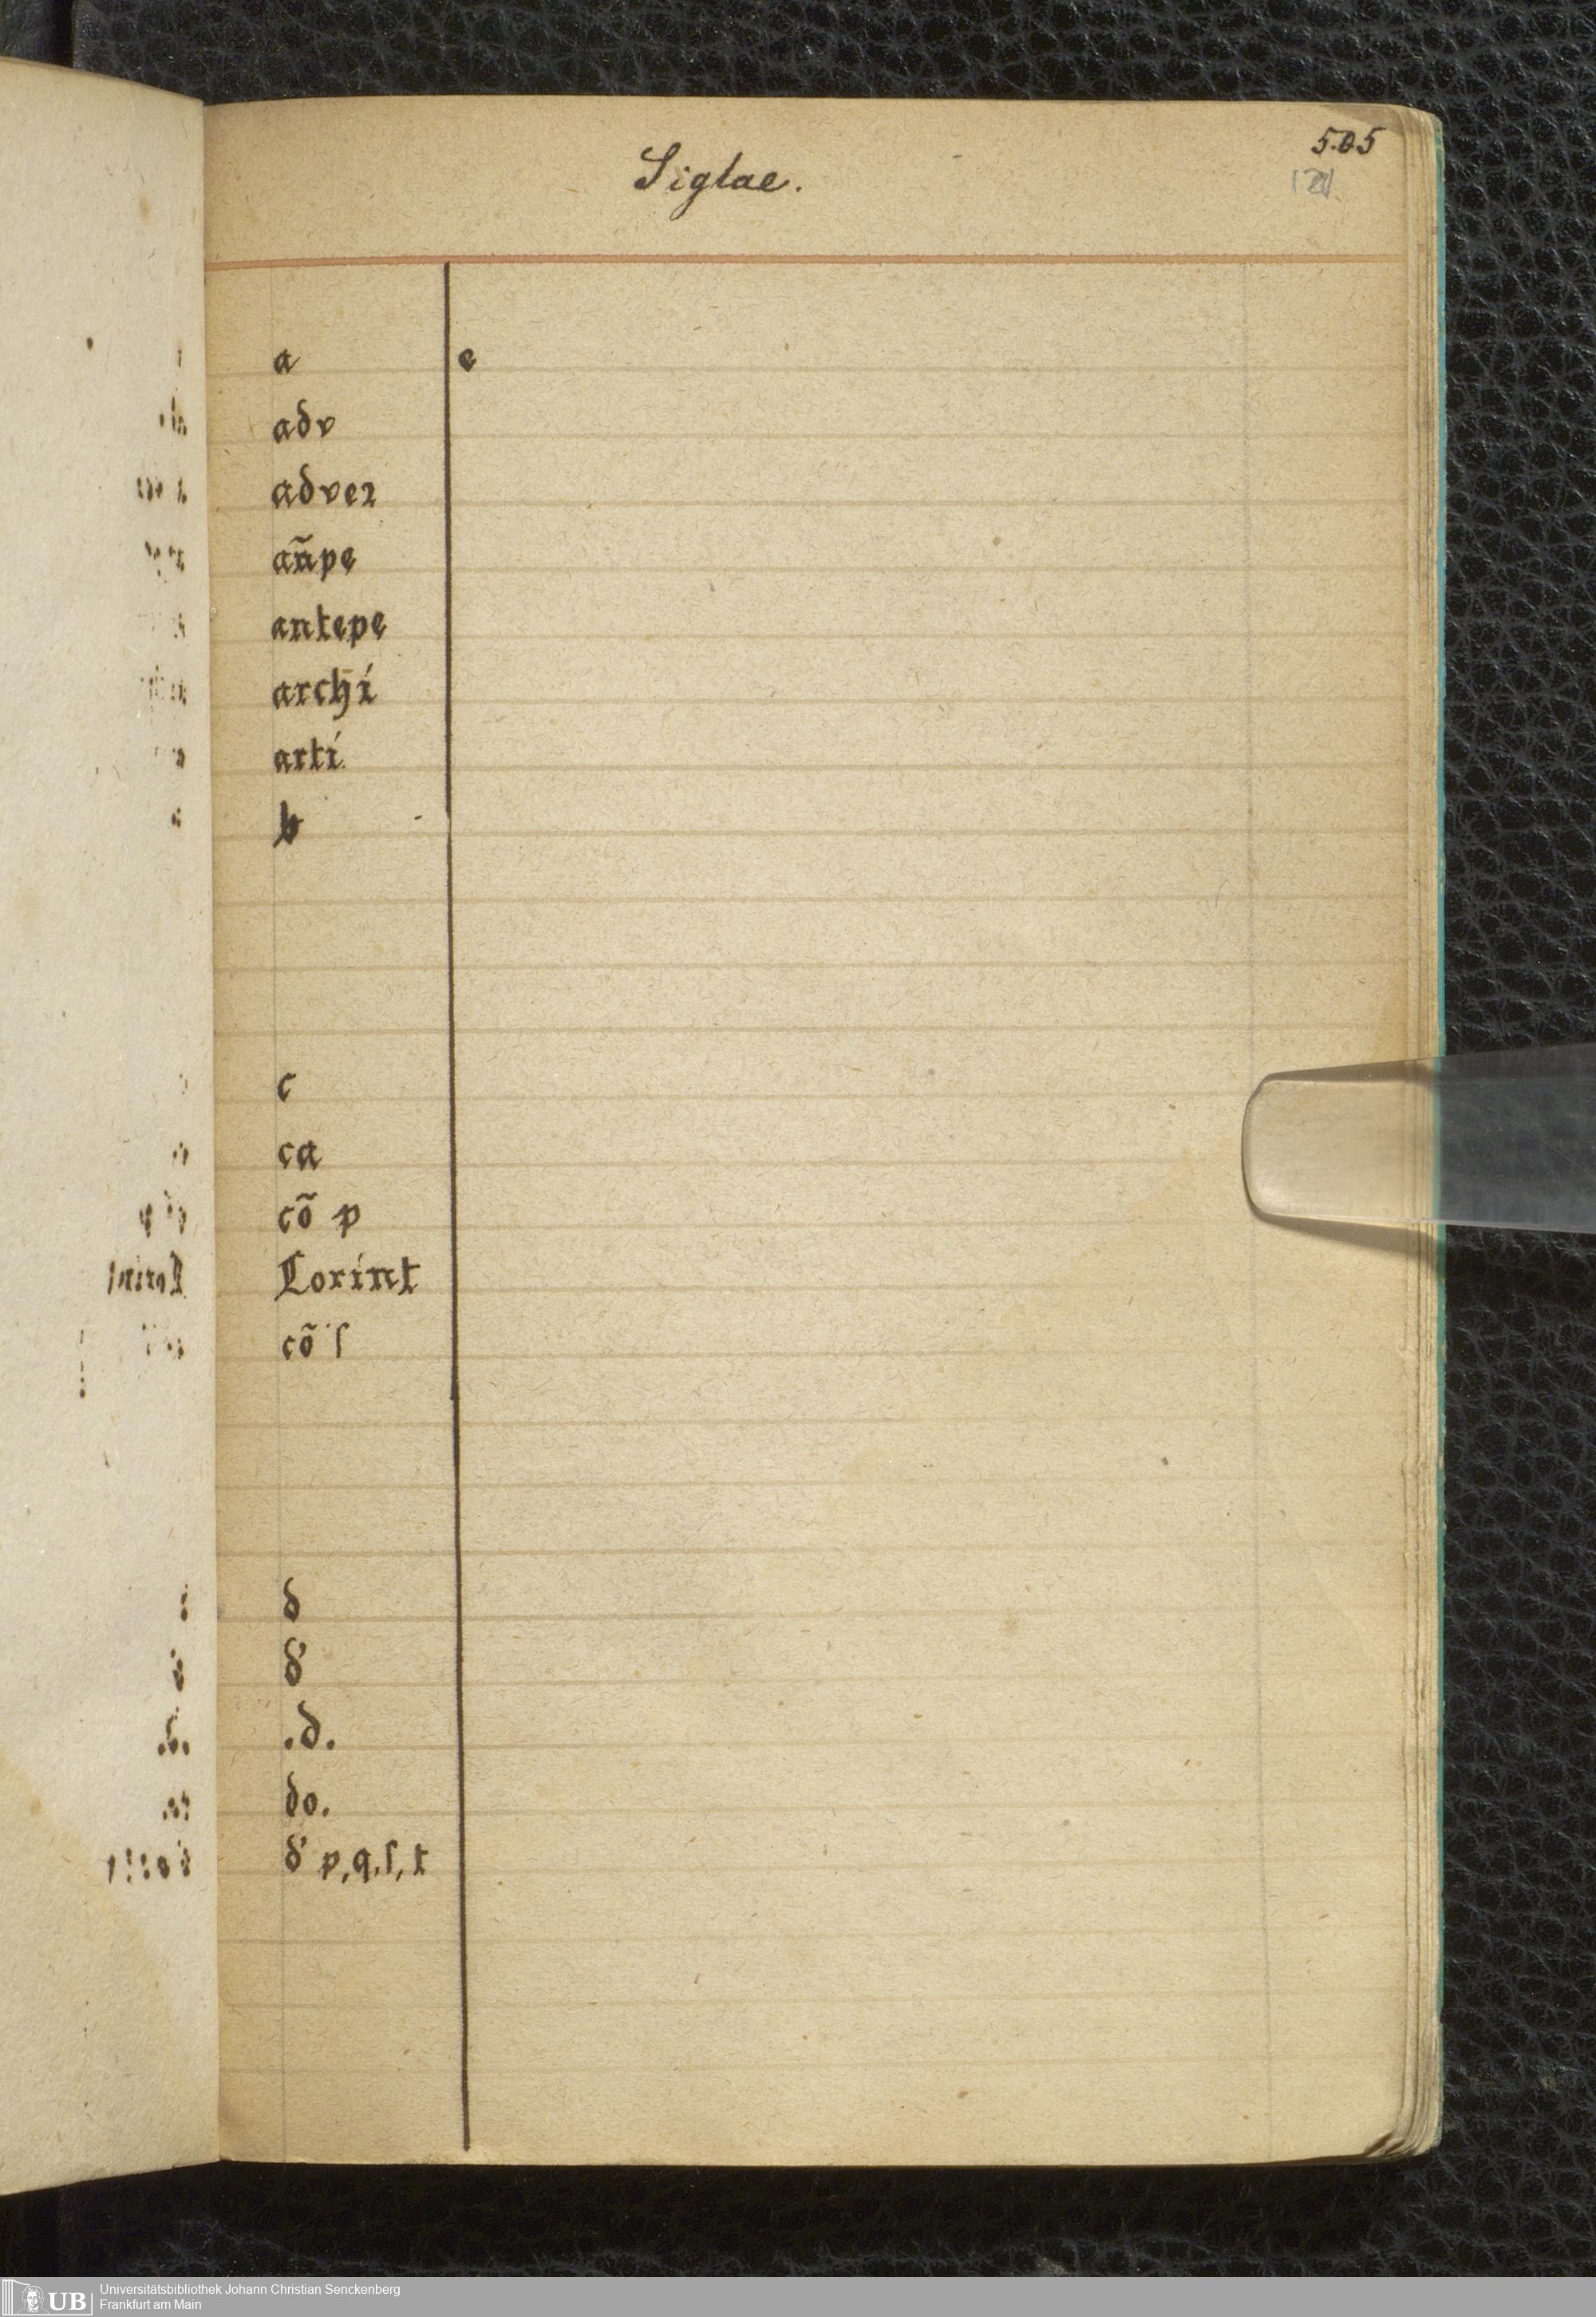 505
Siglae.
a e
adv
adveꝛ
an̄pe
antepe
archi
arti
b
c
ca
cõ p
Corint
cõ ſ
d
d'
.d.
do.
d' p, q, ſ, t
UB Universitätsbibliothek Johann Christian Senckenberg
Frankfurt am Main